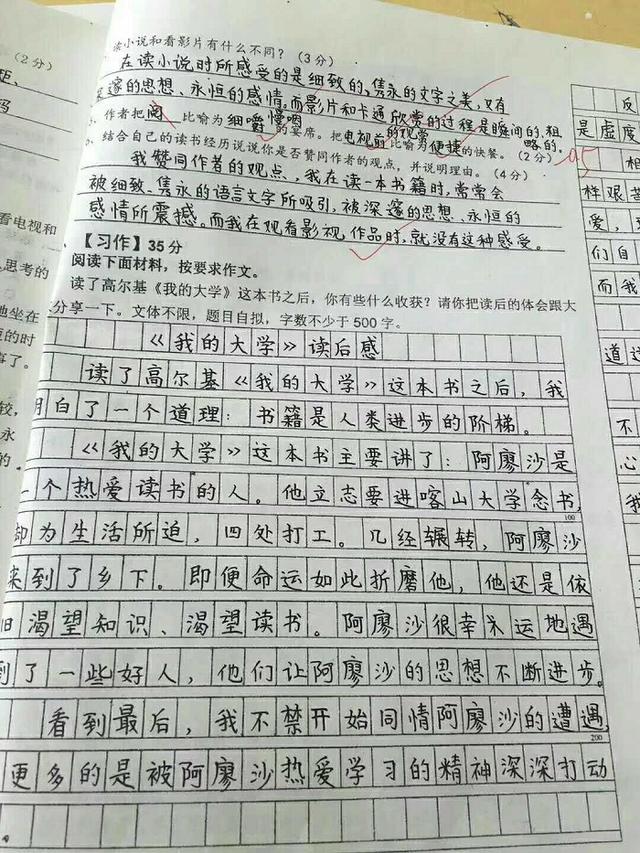 (2分)
读小说和看影片有什么不同？(3分)
在读小说时所感受的是细致的、隽永的文字之美，又有
深邃的思想、永恒的感情。而影片和卡通欣常的过程是瞬间的、粗
略的。
作者把阅 比喻为细嚼慢咽的宴席。把电视的观常比喻为便捷的快餐。(2分)
结合自己的读书经历说说你是否赞同作者的观点，并说明理由。(4分)
我赞同作者的观点、我在读一本书籍时，常常会
被细致、隽永的语言文字所吸引，被深邃的思想、永恒的
感情所震撼。而我在观看影视作品时，就没有这种感受。
【习作】35分
阅读下面材料，按要求作文。
读了高尔基《我的大学》这本书之后，你有些什么收获？请你把读后的体会跟大
分享一下。文体不限，题目自拟，字数不少于500字。
《我的大学》读后感
读了高尔基《我的大学》这本书之后，我
明白了一个道理：书籍是人类进步的阶梯。
《我的大学》这本书主要讲了：阿廖沙是
一个热爱读书的人。他立志要进喀山大学念书，
100
却为生活所迫，四处打工。几经辗转，阿廖沙
来到了乡下。即便命运如此折磨他，他还是依
旧渴望知识、渴望读书。阿廖沙很幸运地遇
到了一些好人，他们让阿廖沙的思想不断进步。
看到最后，我不禁开始同情阿廖沙的遭遇，
200
更多的是被阿廖沙热爱学习的精神深深打动
看电视和
思考的
地坐在
的时
事了。
较，
永
的。
反
是虚度
相
样艰苦
爱，
们自
而我
道
不
心
我